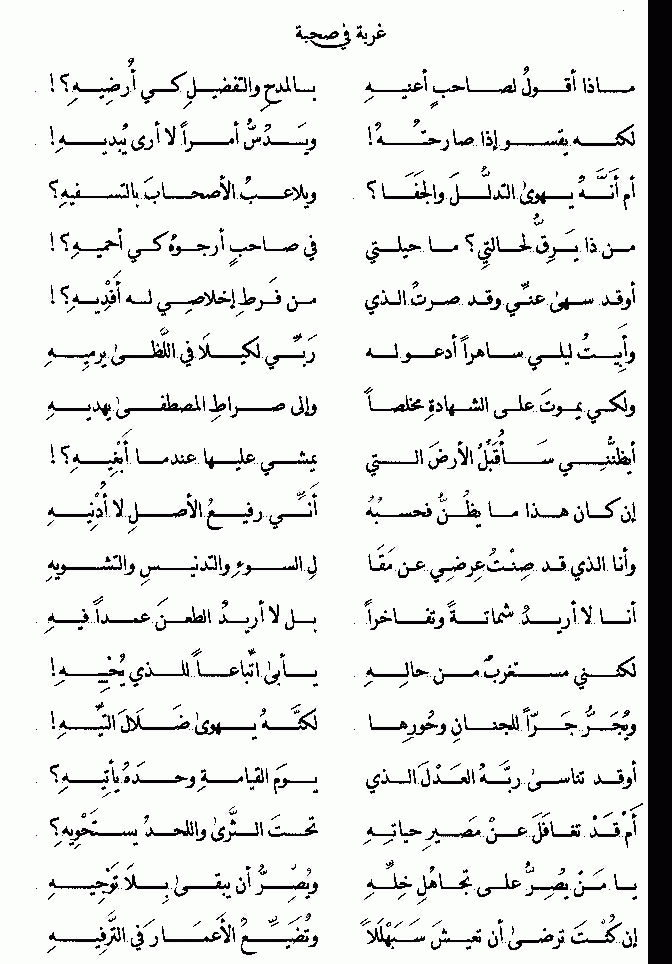 غربة في صحبة
مـاذا أقـولُ لصـاحبٍ أعنيـهِ بـالمدحِ والتفضيلِ كـي أُرضِيـهِ؟!
لكنـه يقسـو إذا صارحتُـهُ! ويَـدُسُّ أمـراً لا أرى يُبديـهِ!
أم أنَّـهُ يـهوىٰ التدلُّـلَ والجَفَـا؟ ويلاعـبُ الأصحـابَ بالتسـفيهِ؟
مـن ذا يَـرِقُّ لحالتي؟ مـا حيلـتي في صاحبٍ أرجـوهُ كـي أحميـهِ؟!
أوقـد سـهىٰ عنّـي وقـد صـرتُ الـذي مـن فَـرطِ إخلاصـي لـه أَفْدِيـهِ؟!
وأَبِيـتُ ليلـي سـاهراً أدعـو لـه رَبّـي لكيـلَا في اللَّظـىٰ يرميـهِ
ولكـي يمـوتَ علـى الشـهادةِ مخلصـاً وإلى صـراطِ المصطفـىٰ يهديـهِ
أيظنّنـي سَـأُقَبِّلُ الأرضَ الـتي يمشـي عليـها عندمـا أَبْغِيـهِ؟!
إن كـان هـذا مـا يظُـنُّ فحسـبُهُ أنّـي رفيـعُ الأصـلِ لا أُدْنِيـهِ
وأنـا الذي قـد صِنْـتُ عِرضـي عن مَقَـا لِ السـوءِ والتدنيـسِ والتشـويهِ
أنـا لا أريـدُ شماتـةً وتفـاخراً بـل لا أريـدُ الطعـنَ عمـداً فيـهِ
لكنـني مسـتغربٌ مـن حالِـهِ يـأبىٰ اتّباعـاً للـذي يُحْيِـهِ!
ويُجَـرُّ جَـرّاً للجنـانِ وحُورِهـا لكنَّـهُ يـهوىٰ ضَـلَالَ التِّيـهِ!
أوقـد تناسـىٰ ربَّـهُ العَـدْلَ الـذي يـومَ القيامـةِ وحـدَهُ يأتِيـهِ؟
أَمْ قَـدْ تغـافَلَ عَـنْ مَصيرِ حياتِـهِ تحـتَ الـثَّرىٰ واللحـدُ يسـتَحْوِيهِ؟
يـا مَـنْ يُصِـرُّ علـى تجـاهُلِ خِلِّـهِ ويُصِـرُّ أن يبقـىٰ بـلَا تَوْجِيـهِ
إن كُنْـتَ ترضـىٰ أن تعيـشَ سَـبَهْلَلَاً وتُضَيِّـعُ الأعمـارَ في التَّرفِيـهِ